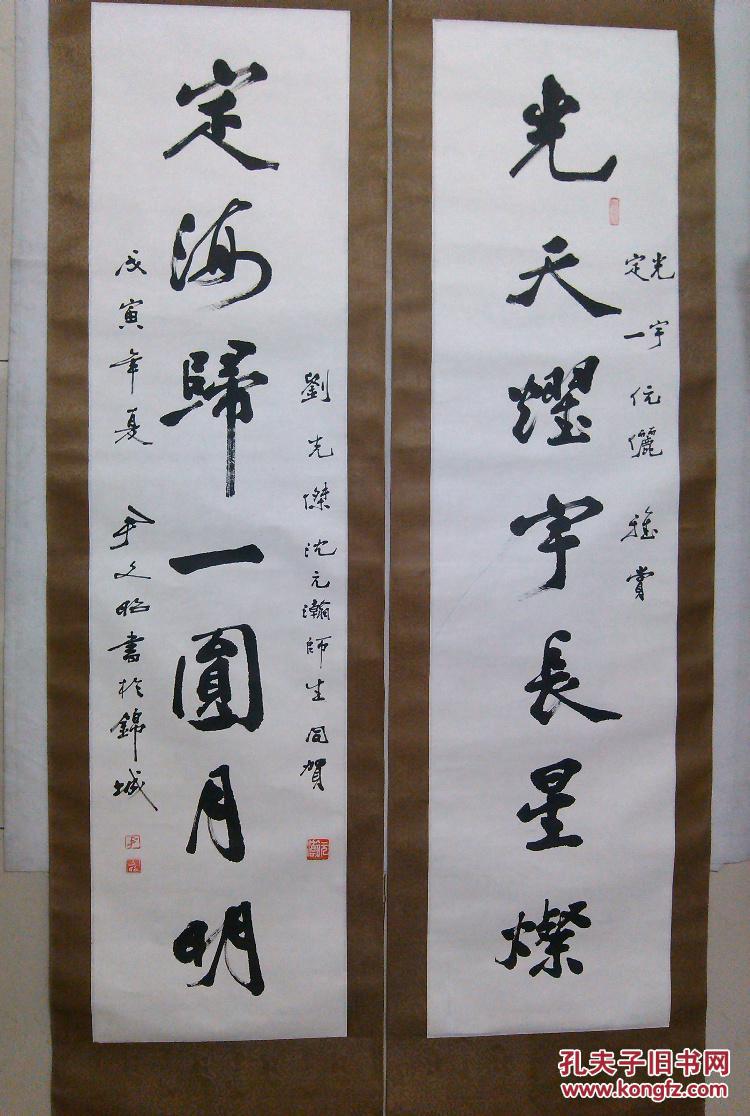 光天耀宇長星燦
光宇
定一
伉儷雅賞
定海歸一圓月明
劉光傑沈元瀚師生同賀
戊寅年夏 尹文昭書於錦城
孔夫子旧书网
www.kongfz.com